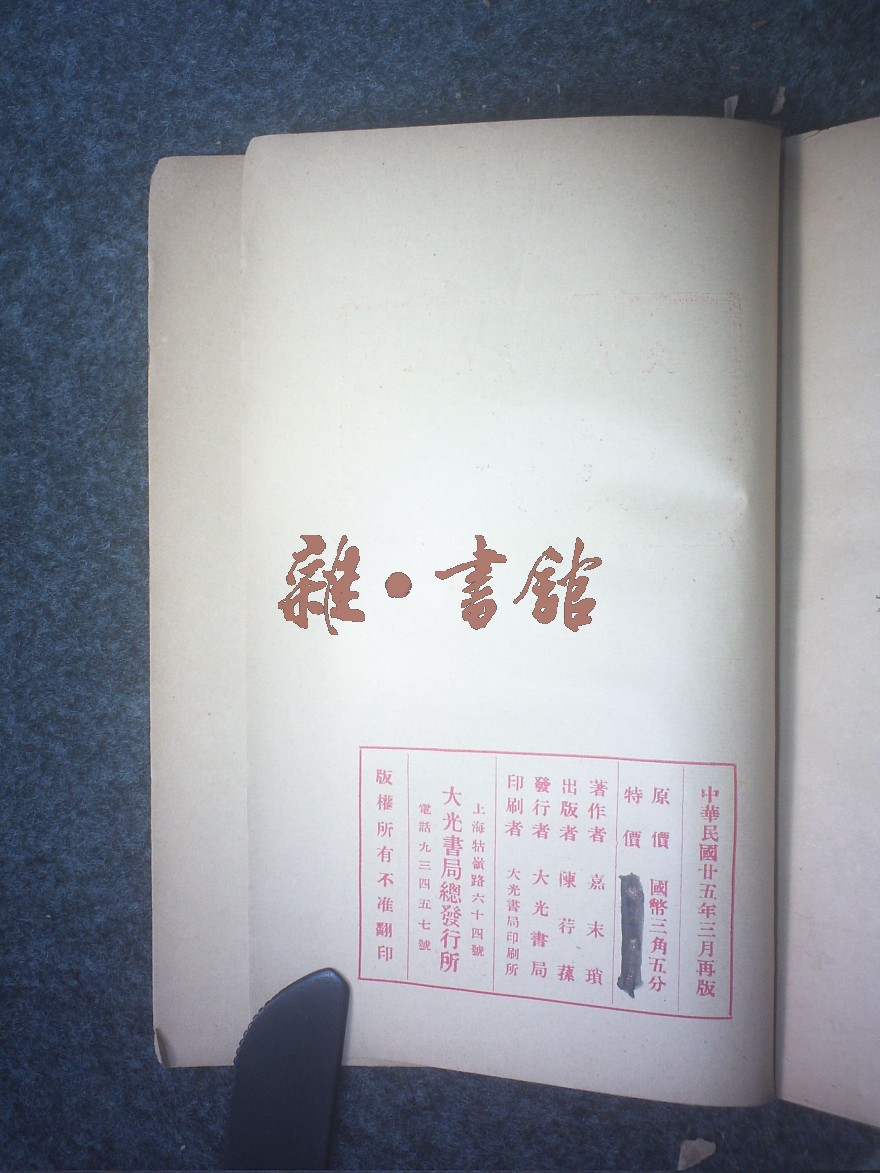 雜·書舘
中華民國廿五年三月再版
原價 國幣三角五分
特價
著作者 嘉末瑣
出版者 陳荇蓀
發行者 大光書局
印刷者 大光書局印刷所
上海牯嶺路六十四號
大光書局總發行所
電話九三四五七號
版權所有不准翻印